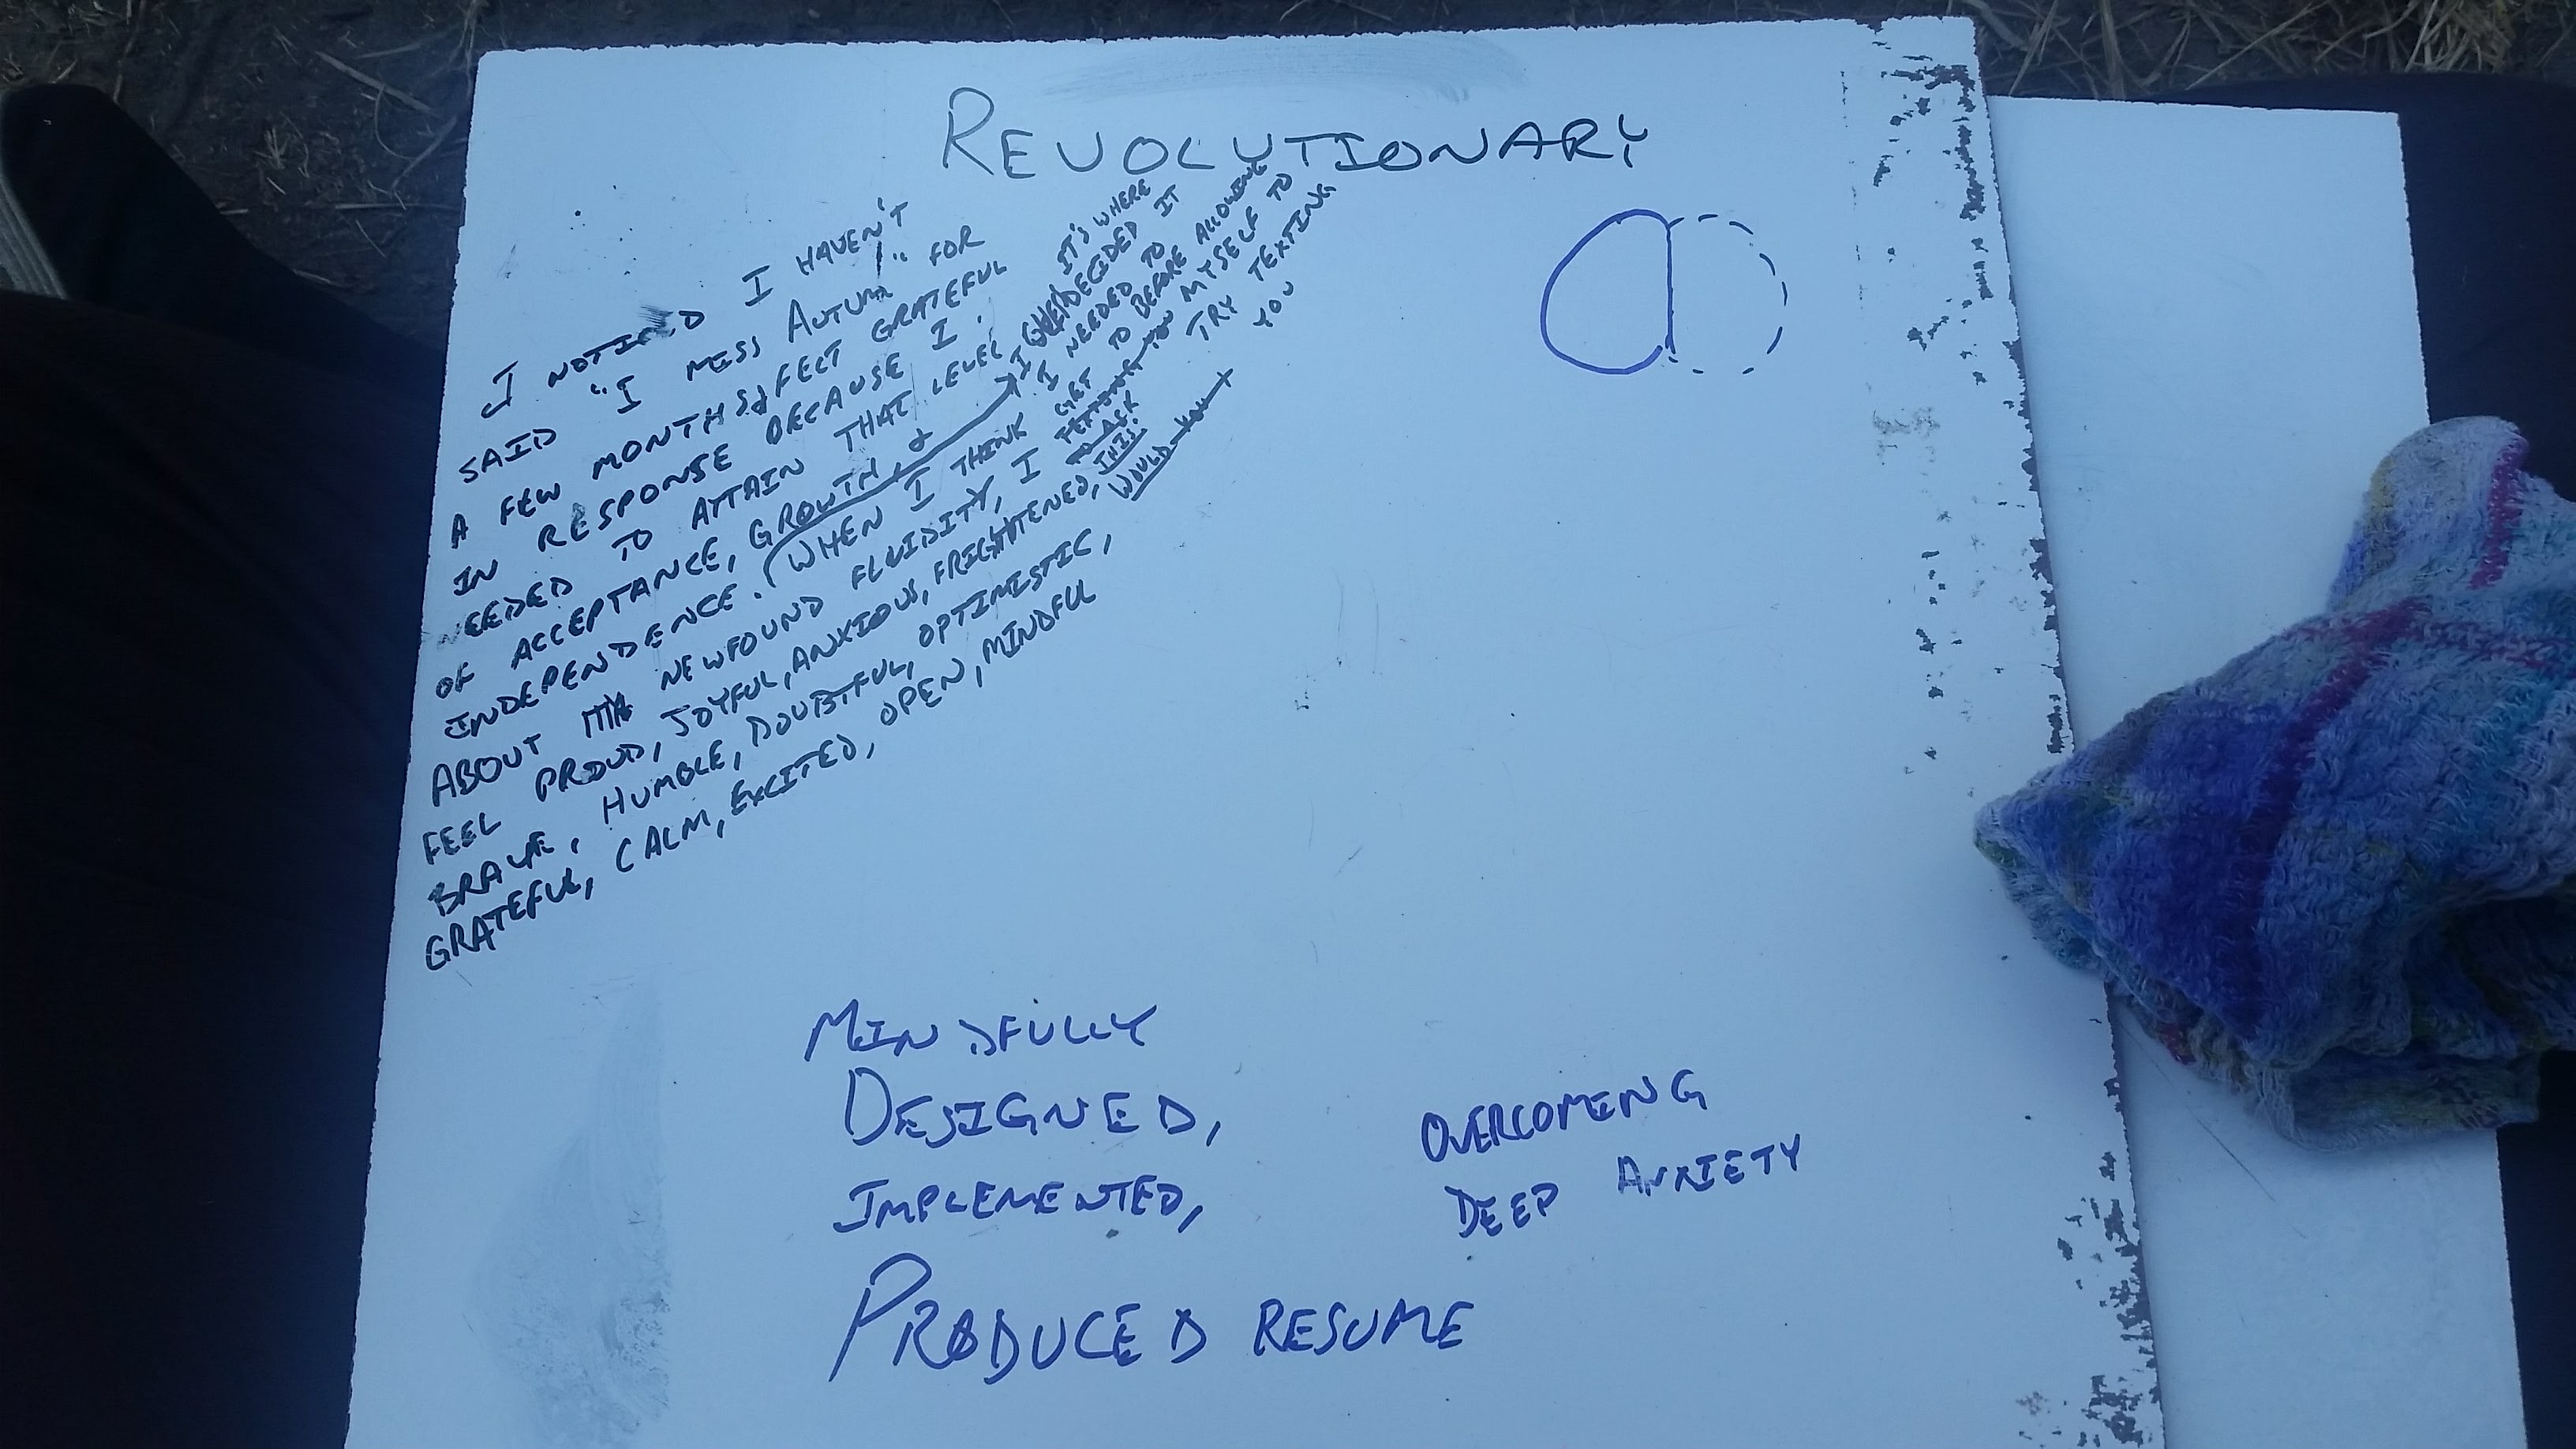 REVOLUTIONARY
I NOTICED I HAVEN'T
SAID "I MISS AUTUMN" FOR
A FEW MONTHS & I FELT GRATEFUL
IN RESPONSE BECAUSE I
NEEDED TO ATTAIN THAT LEVEL
OF ACCEPTANCE, GROWTH, &
INDEPENDENCE. (WHEN I THINK
ABOUT NEWFOUND FLUIDITY, I
FEEL PROUD, JOYFUL, ANXIOUS, FRIGHTENED,
BRAVE, HUMBLE, DOUBTFUL, OPTIMISTIC,
GRATEFUL, CALM, EXCITED, OPEN, MINDFUL
IT'S WHERE
I DECIDED IT
I NEEDED TO
GET TO BEFORE ALLOWING
MYSELF TO
TRY TEXTING
YOU
TO ASK
THIS:
WOULD YOU
MINDFULLY
DESIGNED,
IMPLEMENTED,
PRODUCED RESUME
OVERCOMING
DEEP ANXIETY